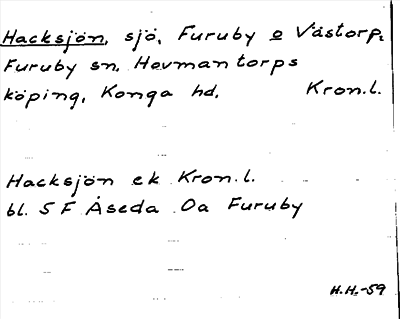 Hacksjön, sjö, Furuby o Västorp.
Furuby sn. Hovmantorps
köping, Konga hd, Kron.l.
Hacksjön ek Kron.l.
bl. 5 F Åseda Oa Furuby
H.H.-59